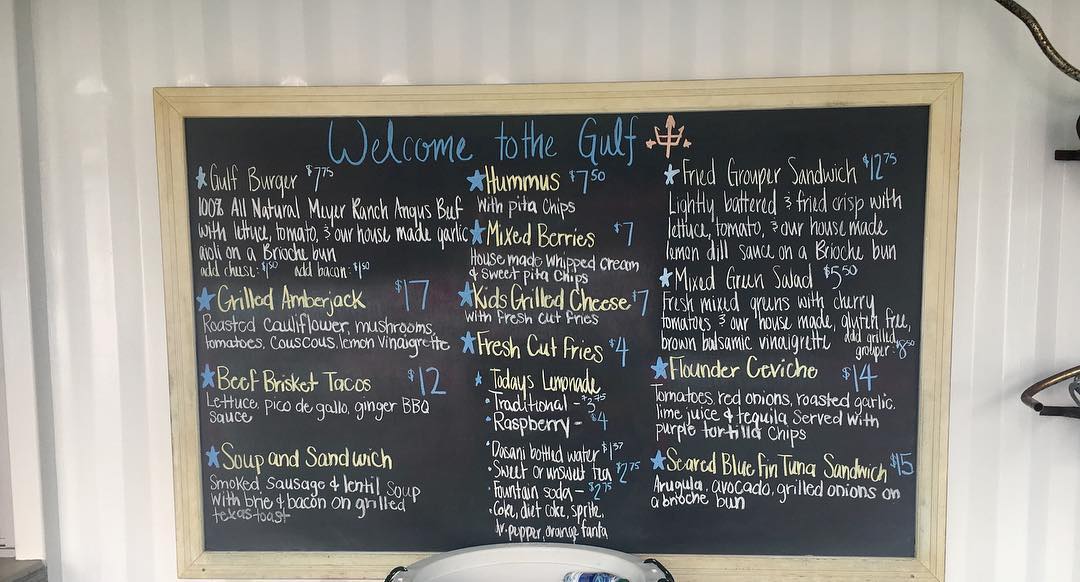 Welcome to the Gulf
Gulf Burger $7.75
100% All Natural Meyer Ranch Angus Beef
with lettuce, tomato, & our house made garlic
aioli on a Brioche bun
add cheese: $1.50 add bacon: $1.50
Grilled Amberjack $17
Roasted cauliflower, mushrooms,
tomatoes, couscous, lemon vinaigrette
Beef Brisket Tacos $12
Lettuce, pico de gallo, ginger BBQ
sauce
Soup and Sandwich
Smoked sausage & lentil soup
with brie & bacon on grilled
texas toast
Hummus $7.50
With pita chips
Mixed Berries $7
House made whipped cream
& sweet pita chips
Kids Grilled Cheese $7
with fresh cut fries
Fresh Cut Fries $4
Todays Lemonade
Traditional - $3.75
Raspberry - $4
Dasani bottled water $1.57
Sweet or unsweet tea $2.75
Fountain soda - $2.75
Coke, diet coke, sprite,
dr. pepper, orange fanta
Fried Grouper Sandwich $12.75
Lightly battered & fried crisp with
lettuce, tomato, & our house made
lemon dill sauce on a Brioche bun
Mixed Green Salad $5.50
Fresh mixed greens with cherry
tomatoes & our house made, gluten free,
brown balsamic vinaigrette add grilled
grouper: $8.50
Flounder Ceviche $14
Tomatoes, red onions, roasted garlic,
lime juice & tequila served with
purple tortilla chips
Seared Blue Fin Tuna Sandwich $15
Arugula, avocado, grilled onions on
a brioche bun